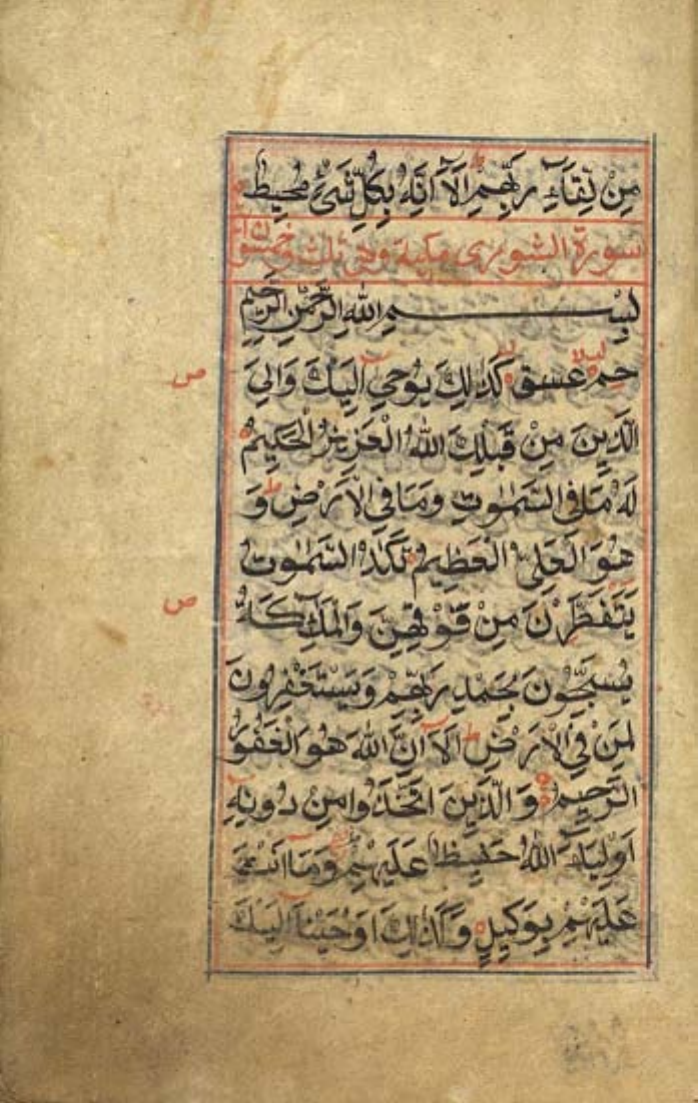 مِنْ لِقَآءِ رَبِّهِمْ اَلَآ اِنَّهُ بِكُلِّ شَیْءٍ مُحِیْطٌ
سورة الشورى مكية وهي ثلث وخمسون
بِسْمِ اللّٰهِ الرَّحْمٰنِ الرَّحِیْمِ
حٰمٓ عٓسٓقٓ كَذٰلِكَ یُوْحِیْٓ اِلَیْكَ وَاِلَی
ص
الَّذِیْنَ مِنْ قَبْلِكَ اللّٰهُ الْعَزِیْزُ الْحَكِیْمُ
لَهُ مَا فِی السَّمٰوٰتِ وَمَا فِی الْاَرْضِ ط وَ
هُوَ الْعَلِیُّ الْعَظِیْمُ تَكَادُ السَّمٰوٰتُ
یَتَفَطَّرْنَ مِنْ فَوْقِهِنَّ وَالْمَلٰٓئِكَةُ
ص
یُسَبِّحُوْنَ بِحَمْدِ رَبِّهِمْ وَیَسْتَغْفِرُوْنَ
لِمَنْ فِی الْاَرْضِ ط اَلَآ اِنَّ اللّٰهَ هُوَ الْغَفُوْرُ
الرَّحِیْمُ وَالَّذِیْنَ اتَّخَذُوْا مِنْ دُوْنِهٖٓ
اَوْلِیَآءَ اللّٰهُ حَفِیْظٌ عَلَیْهِمْ وَمَآ اَنْتَ
عَلَیْهِمْ بِوَكِیْلٍ وَكَذٰلِكَ اَوْحَیْنَآ اِلَیْكَ